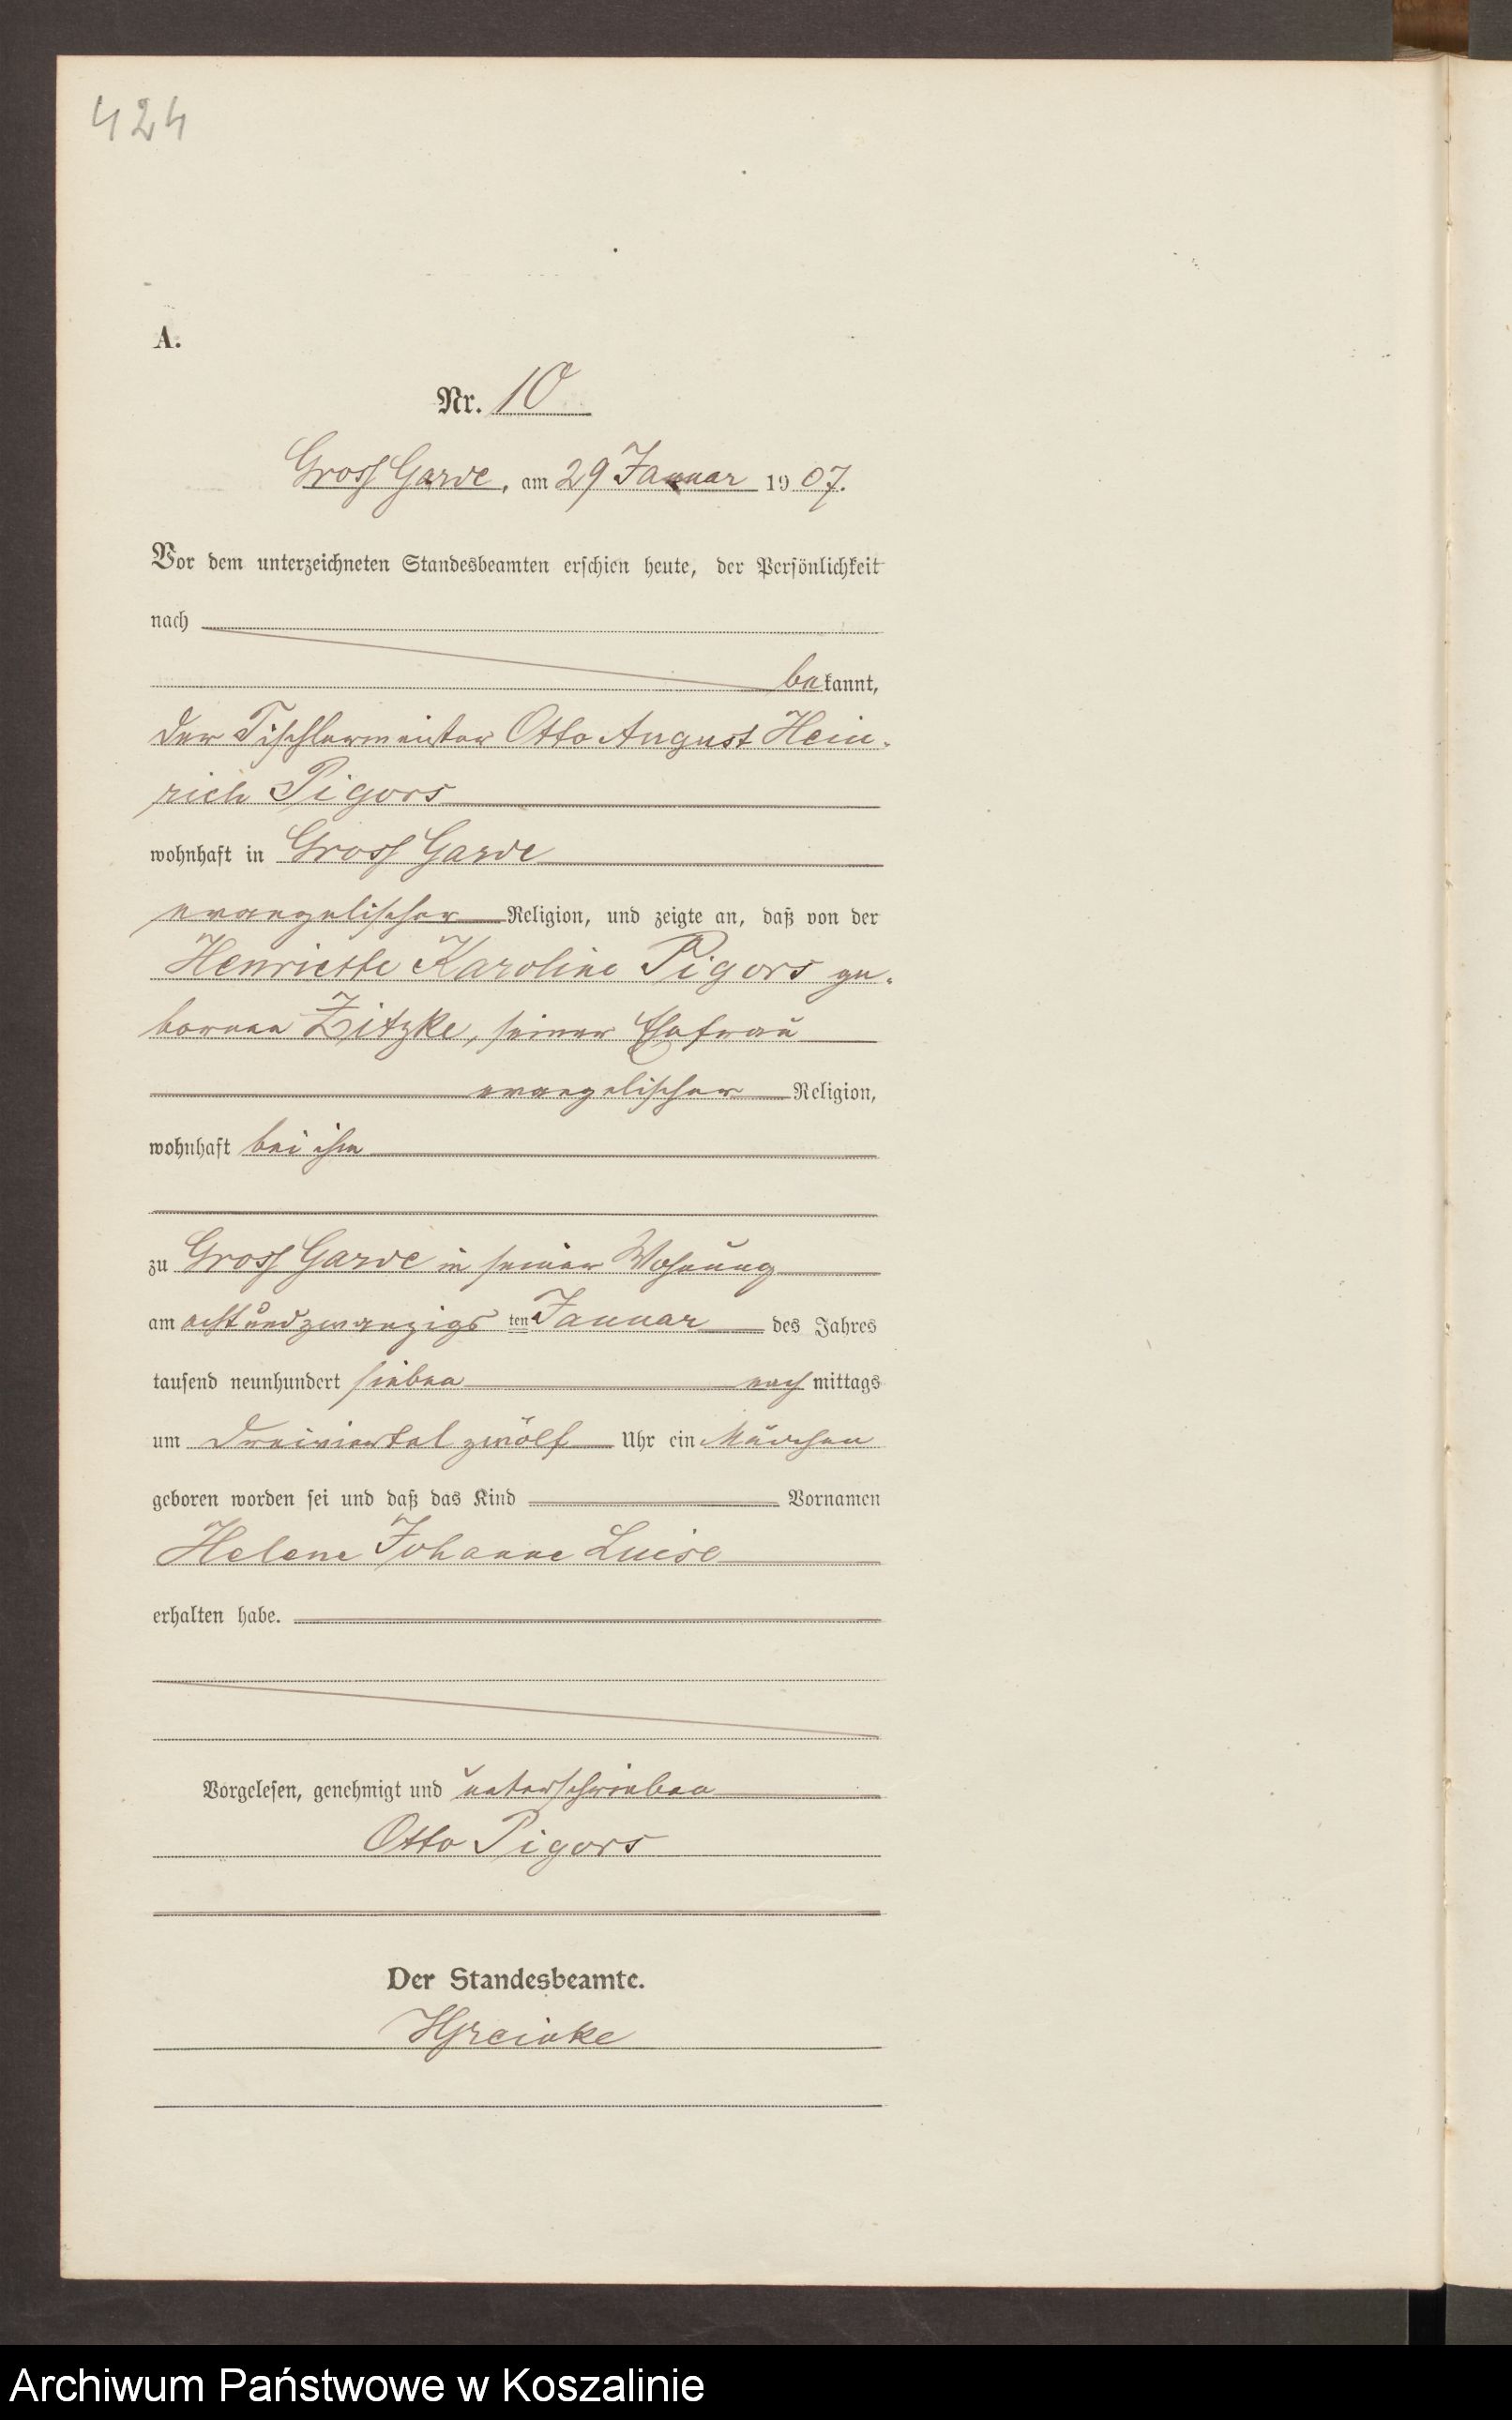 424
A.
Nr. 10
Gross Garde, am 29 Januar 1907.
Vor dem unterzeichneten Standesbeamten erschien heute, der Persönlichkeit
nach
bekannt,
der Tischlermeister Otto August Hein-
rich Pigors
wohnhaft in Gross Garde
evangelischer Religion, und zeigte an, daß von der
Henriette Karoline Pigors ge-
borenen Zitzke, seiner Ehefrau
evangelischer Religion,
wohnhaft bei ihm
zu Gross Garde in seiner Wohnung
am achtundzwanzigsten Januar des Jahres
tausend neunhundert sieben nachmittags
um dreiviertel zwölf Uhr ein Mädchen
geboren worden sei und daß das Kind Vornamen
Helene Johanne Luise
erhalten habe.
Vorgelesen, genehmigt und unterschrieben
Otto Pigors
Der Standesbeamte.
Archiwum Państwowe w Koszalinie